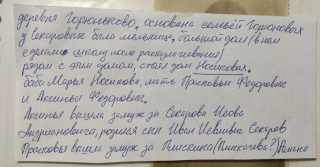 деревня Горюньково, основана семьей Горюновых
у Секаровых была мельница, большой дом (в нем
сделали школу после раскулачивания)
рядом с этим домом, стоял дом Носиковых.
баба Марья Носикова, мать Прасковьи Федоровны
и Аксиньи Федоровны.
Аксинья вышла замуж за Секарова Иева
Андриановича, родился сын Иван Иевлевич Секаров
Прасковья вышла замуж за Плискина (